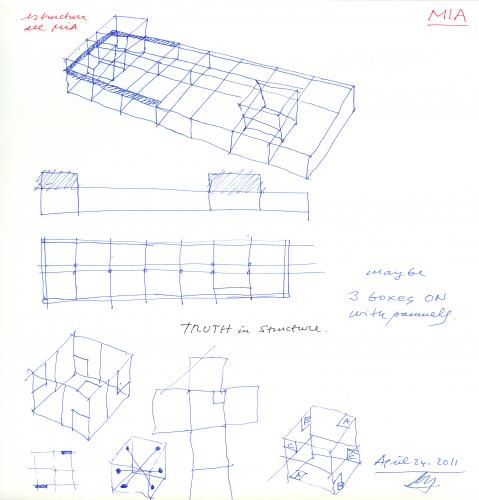 estructura
del MIA
MIA
maybe
3 boxes ON
with pannels.
TRUTH in structure.
B
A
C
E
A
B
April 24. 2011